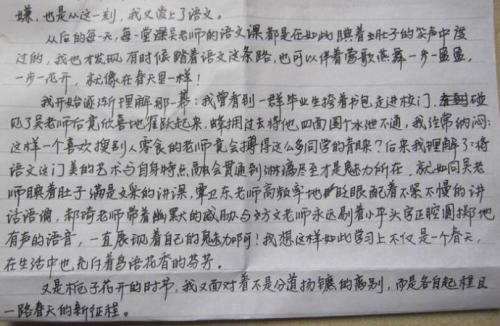 嫌，也是从这一刻，我又爱上了语文。
从后的每一天，每一堂课吴老师的语文课都是在如此腆着肚子的笑声中度
过的，我也才发现有时候踏着语文这条路，也可以伴着莺歌燕舞一步一盈盈，
一步一花开，就像在春天里一样！
我开始逐渐理解那一幕：我曾看到一群毕业生挎着书包走进校门，碰
见了吴老师后竟欣喜地雀跃起来，蜂拥过去将他四面围个水泄不通，我经常纳闷：
这样一个喜欢搜刮人零食的老师竟会搏得这么多同学的青睐？后来我理解了：将
语文这门美的艺术与自身特点融会贯通到淋漓尽至才是魅力所在，就如同吴老
师腆着肚子满是文采的讲课，覃卫东老师高频率地眨眼配着不紧不慢的讲
话语调，郝琦老师带着幽默的威胁与方文老师永远剃着小平头字正腔圆掷地
有声的语音，一直展现着自己的魅力啊！我想这样如此学习上不仅是一个春天，
在生活中也充斥着鸟语花香的芬芳。
又是栀子花开的时节，我又面对着不是分道扬镳的离别，而是各自起程且
一路春天的新征程。